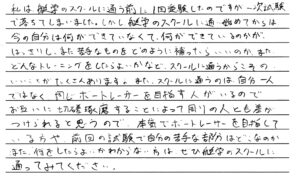 私は艇学のスクールに通う前に1回受験したのですが一次試験
で落ちてしまいました。しかし艇学のスクールに通い始めてからは
今の自分は何ができていなくて、何ができているのかが、
はっきりし、また苦手なものをどのように補ったらいいのか、また
どんなトレーニングをしたらよいかなど、スクールに通う前からこその
いいことがたくさんあります。また、スクールに通うのは、自分一人
ではなく、同じボートレーサーを目指す人がいるので
お互いに切磋琢磨することによって周りの人とも差が
つけられると思うので、本気でボートレーサーを目指して
いる方や、前回の試験で自分の苦手な部分はどこなのか
また、何をしたらよいかわからない方は、ぜひ艇学のスクールに
通ってみてください。